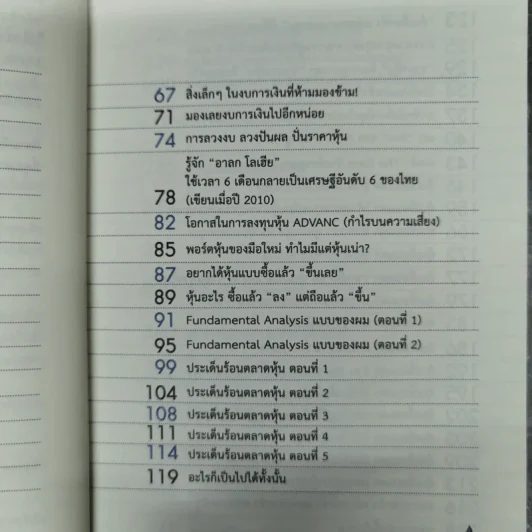 67 สิ่งเล็กๆ ในงบการเงินที่ห้ามมองข้าม!
71 มองเลยงบการเงินไปอีกหน่อย
74 การลวงงบ ลวงปันผล ปั่นราคาหุ้น
รู้จัก “อาลก โลเฮีย”
ใช้เวลา 6 เดือนกลายเป็นเศรษฐีอันดับ 6 ของไทย
78 (เขียนเมื่อปี 2010)
82 โอกาสในการลงทุนหุ้น ADVANC (กำไรบนความเสี่ยง)
85 พอร์ตหุ้นของมือใหม่ ทำไมมีแต่หุ้นเน่า?
87 อยากได้หุ้นแบบซื้อแล้ว “ขึ้นเลย”
89 หุ้นอะไร ซื้อแล้ว “ลง” แต่ถือแล้ว “ขึ้น”
91 Fundamental Analysis แบบของผม (ตอนที่ 1)
95 Fundamental Analysis แบบของผม (ตอนที่ 2)
99 ประเด็นร้อนตลาดหุ้น ตอนที่ 1
104 ประเด็นร้อนตลาดหุ้น ตอนที่ 2
108 ประเด็นร้อนตลาดหุ้น ตอนที่ 3
111 ประเด็นร้อนตลาดหุ้น ตอนที่ 4
114 ประเด็นร้อนตลาดหุ้น ตอนที่ 5
119 อะไรก็เป็นไปได้ทั้งนั้น